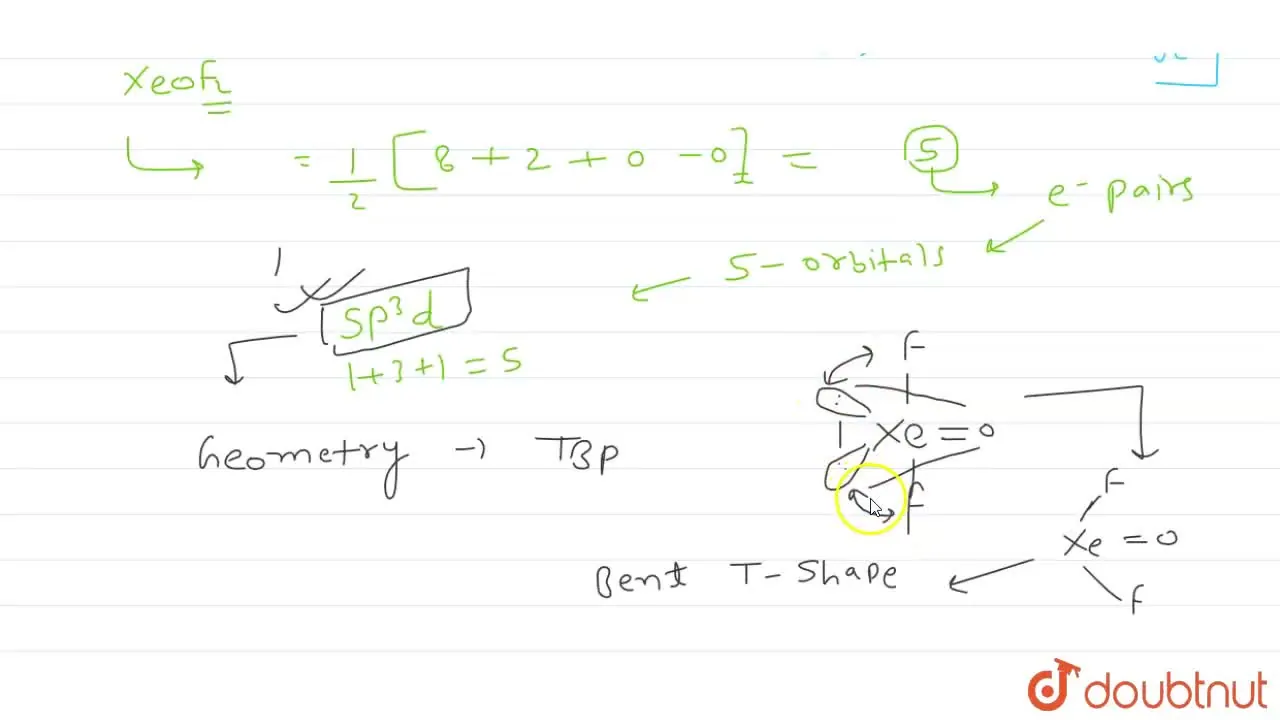 XeOF2
= 1/2 [8 + 2 + 0 - 0] = 5
e- pairs
5 - orbitals
sp3d
1+3+1 = 5
F
Xe = O
F
Geometry → TBP
F
Xe = O
F
Bent T-Shape
doubtnut